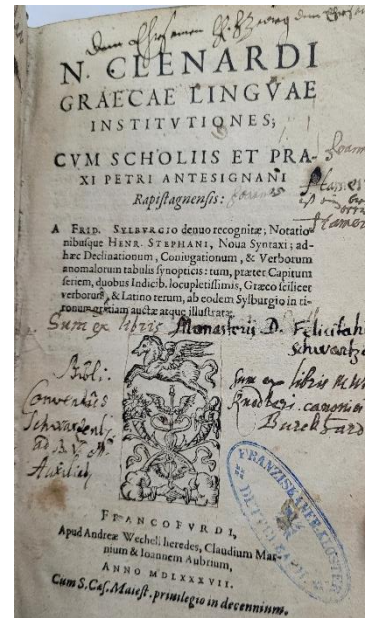 N. CLENARDI
GRAECAE LINGVAE
INSTITVTIONES;
CVM SCHOLIIS ET PRA-
XI PETRI ANTESIGNANI
Rapistagnensis:
A FRID. SYLBVRGIO denuo recognitæ; Notatio
nibusque HENR. STEPHANI, Noua Syntaxi; ad-
hæc Declinationum, Coniugationum, & Verborum
anomalorum tabulis synopticis: tum, præter Capitum
seriem, duobus Indicib. locupletissimis, Græco scilicet
verborum, & Latino rerum, ab eodem Sylburgio in ti-
ronum gratiam auctæ atque illustratæ.
Sum ex libris Monasterii D. Felicitatis
Schwartz
Bibl:
Conventûs
ad B. V. M.
Sum ex libris
canonici
Burckhard
FRANZISKANER-KLOSTER
FRANCOFVRDI,
Apud Andreæ Wecheli heredes, Claudium Mar-
nium & Ioannem Aubrium,
ANNO MDLXXXVII.
Cum S. Cæs. Maiest. priuilegio in decennium.